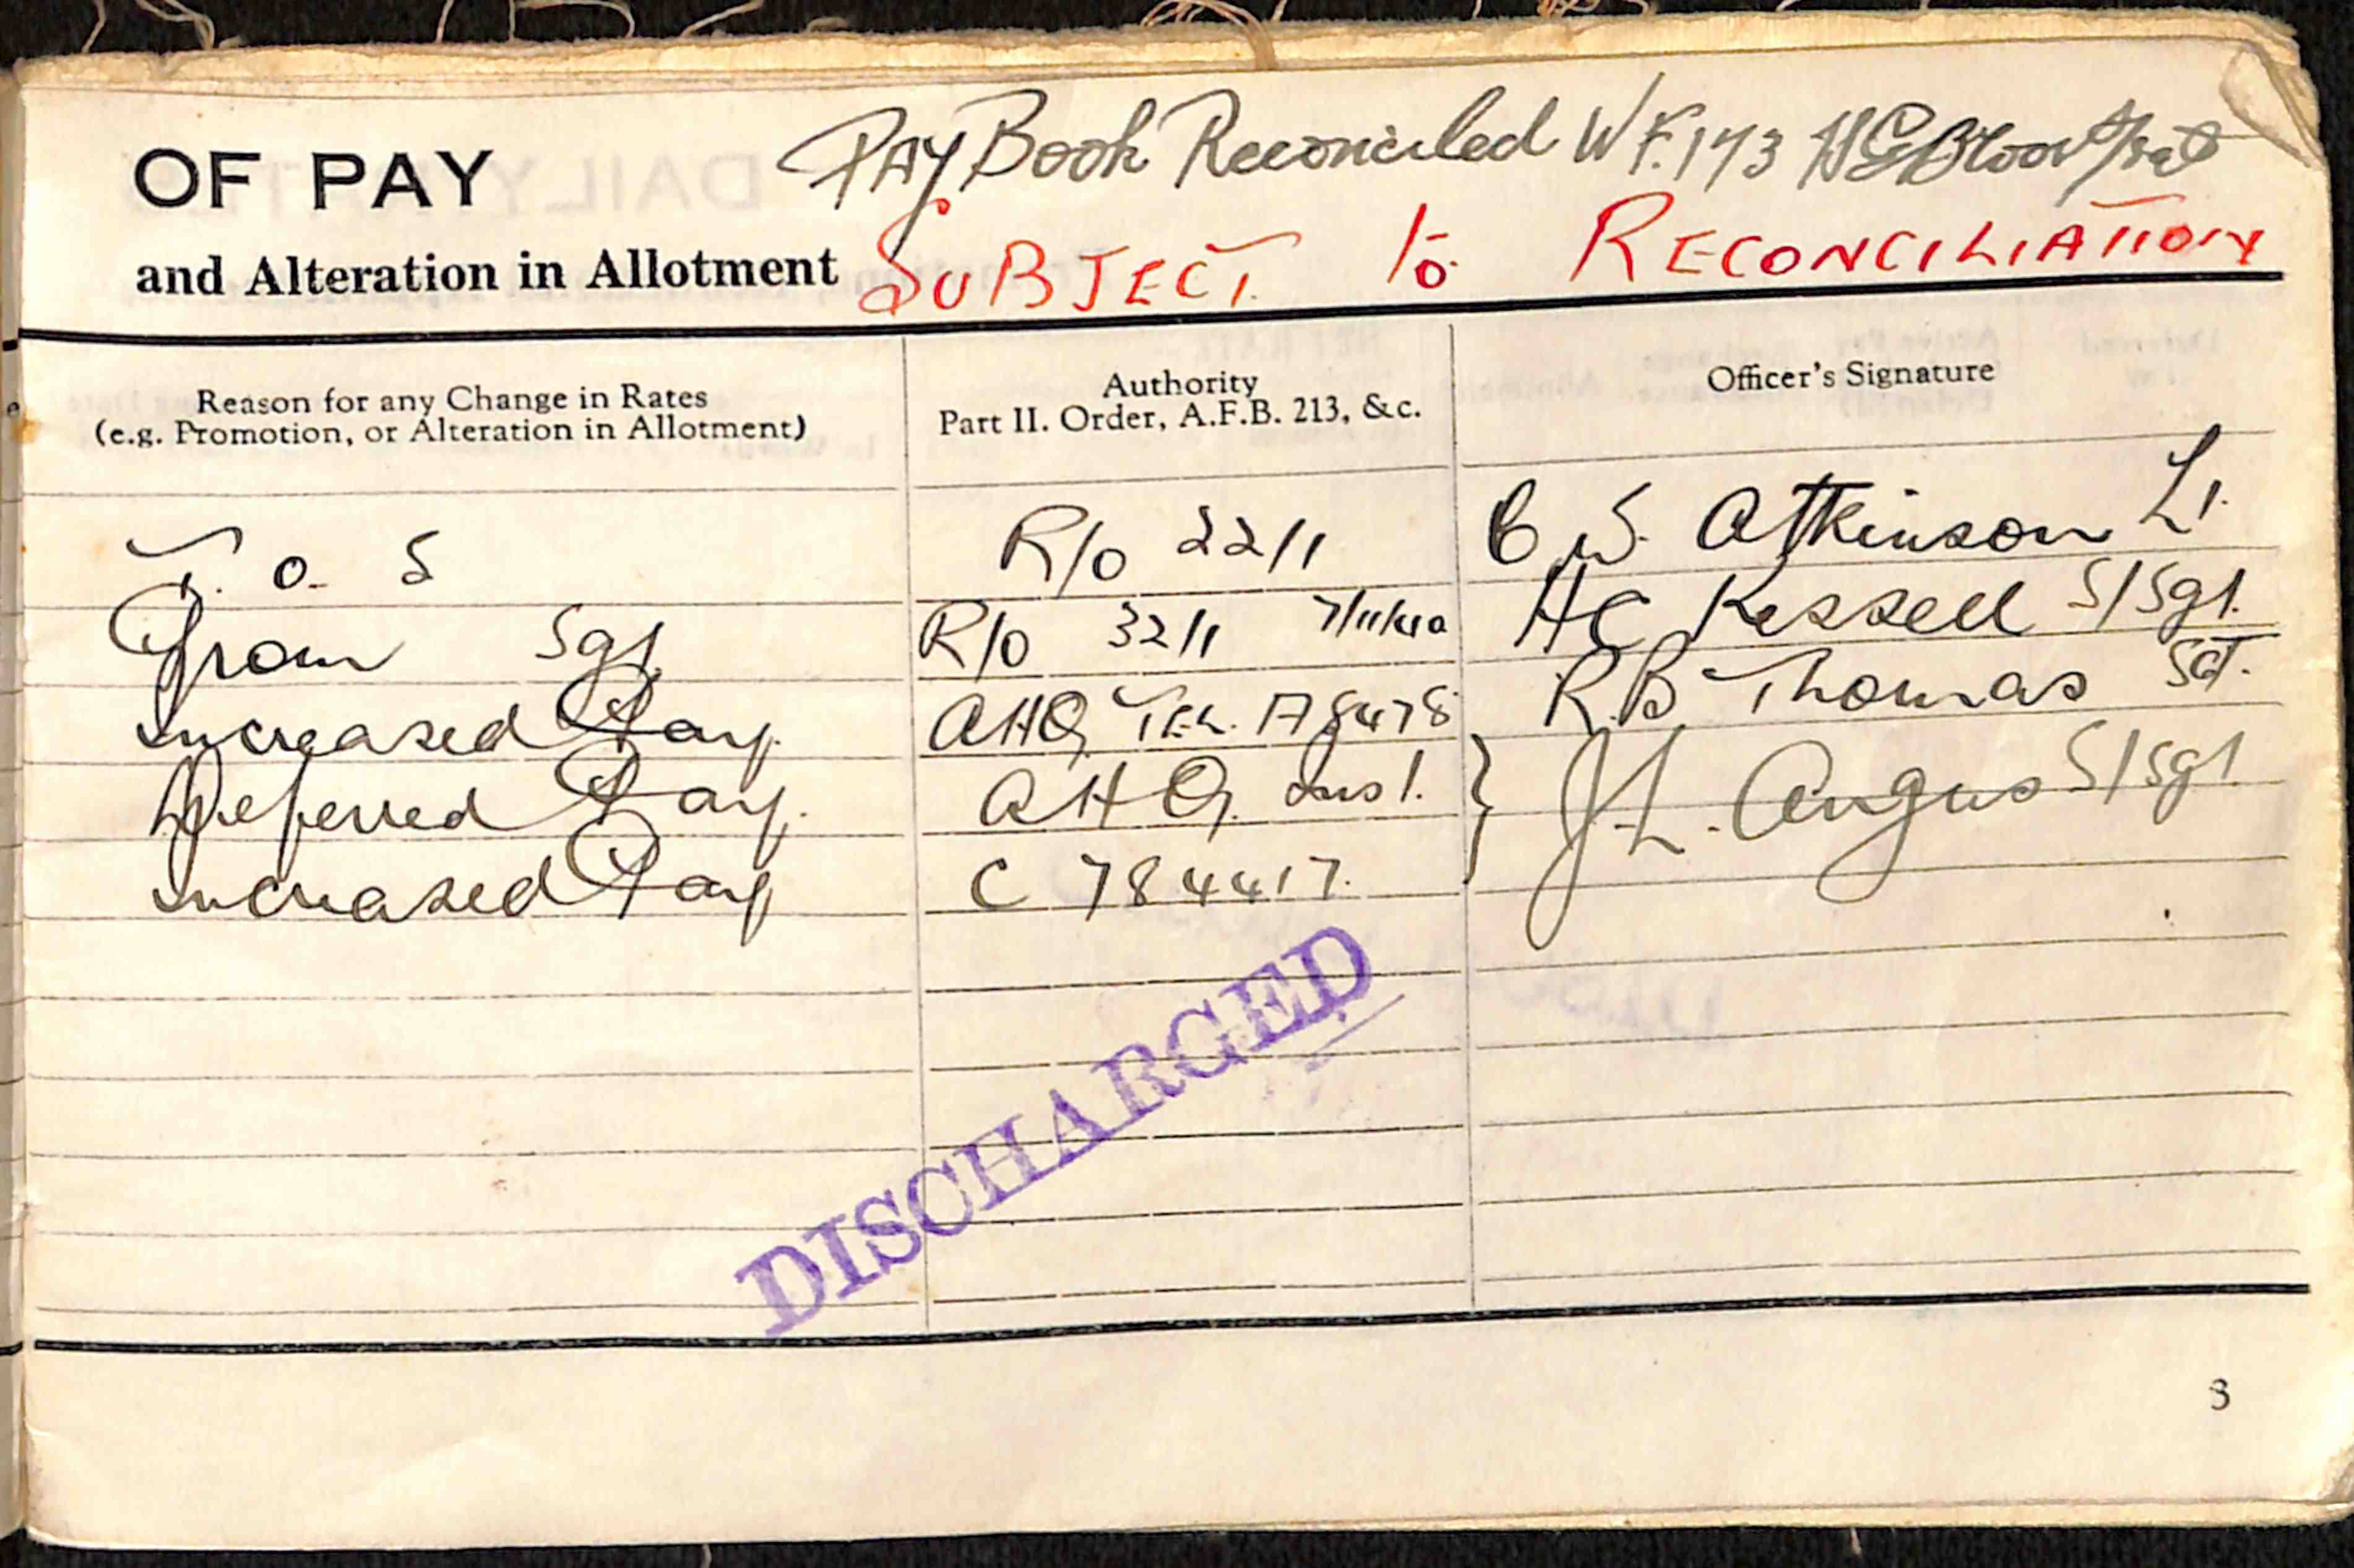 OF PAY
Pay Book Reconciled WF.173
and Alteration in Allotment
SUBJECT To RECONCILIATION
Reason for any Change in Rates
(e.g. Promotion, or Alteration in Allotment)
Authority
Part II. Order, A.F.B. 213, &c.
Officer's Signature
T. O. S R/O 22/1 C W. Atkinson Lt.
Prom Sgt R/O 32/1 HC Kessell S/Sgt.
Increased Pay. AHQ Tel. A8478 R.B Thomas Sgt.
Deferred Pay. AHQ. Inst. } J.L. Angus S/Sgt
Increased Pay C 784417.
DISCHARGED
3